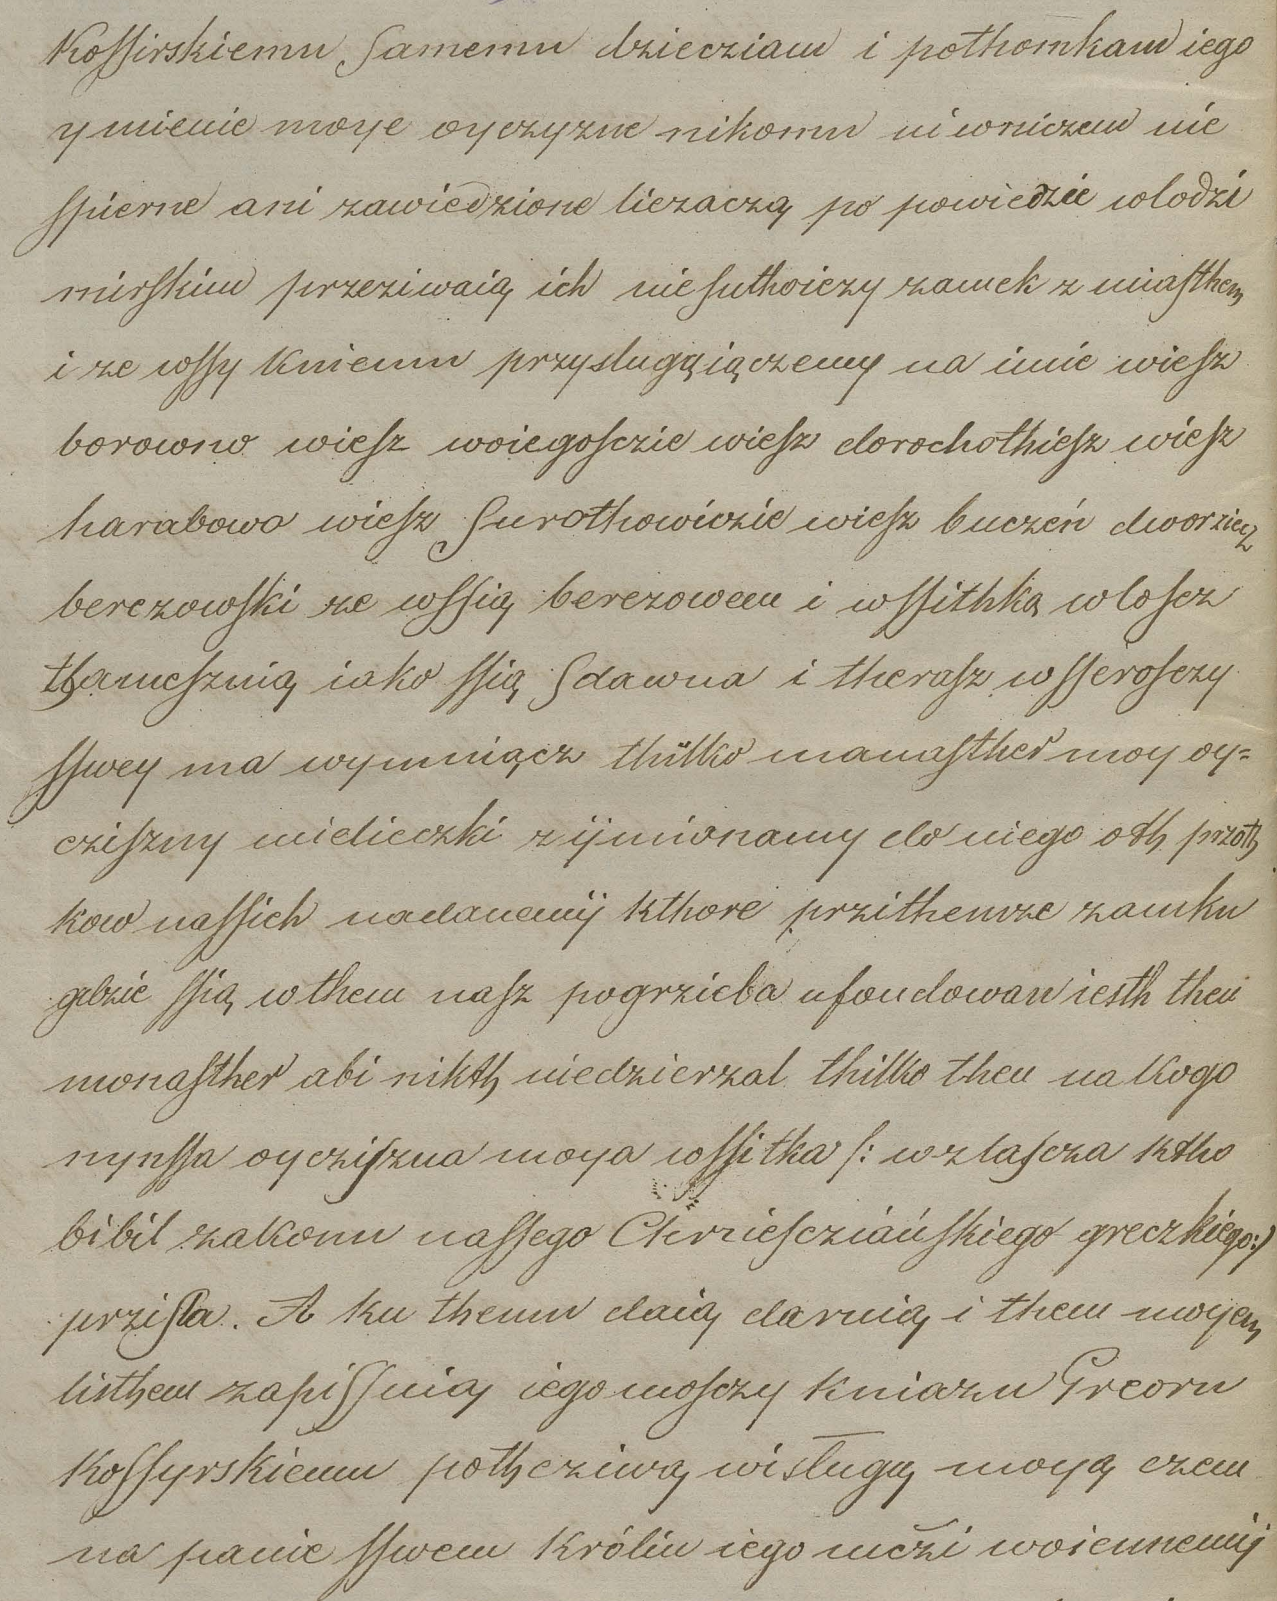 Kossirskiemu samemu dziecziam i pothomkam iego
ymienie moye oyczyzne nikomu ni wniczem nie
spierne ani zawiedzione liezaczą po powiedzie wlodzi
mirskim przeziwaią ich niesuthoiezy zamek z miasthem
i ze wssy kniemu przysługąiączemy na imie wiesz
borowno wiesz woiegosczie wiesz dorochothiesz wiesz
harabowo wiesz Surothowiczie wiesz buczeń dworziecz
berezowski ze wssią berezowem i wssithką wloscz
thameszną iako ssią Sdawna i therasz wsserosczy
sswey ma wymniącz thilko manasther moy oy=
cziszny mielieczki z ijmionamy do niego oth przoth
kow nassich nadanemij kthore przithemze zamku
gdzie ssią wthem nasz pogrzieba ufondowan iesth then
monasther abi nikth niedzierzal thilko then na kogo
nynssa oycziszna moya wssitka /: wzlascza ktho
bi bil zakonu nassego Chrziescziańskiego greczkiego:/
przisla. A ku themu daią daruią i them moyem
listhem zapissuią iego mosczy kniazu Greoru
Kossyrskiemu potheziwą wisługą moyą czem
na panie sswem Królin iego mczi woiennemij